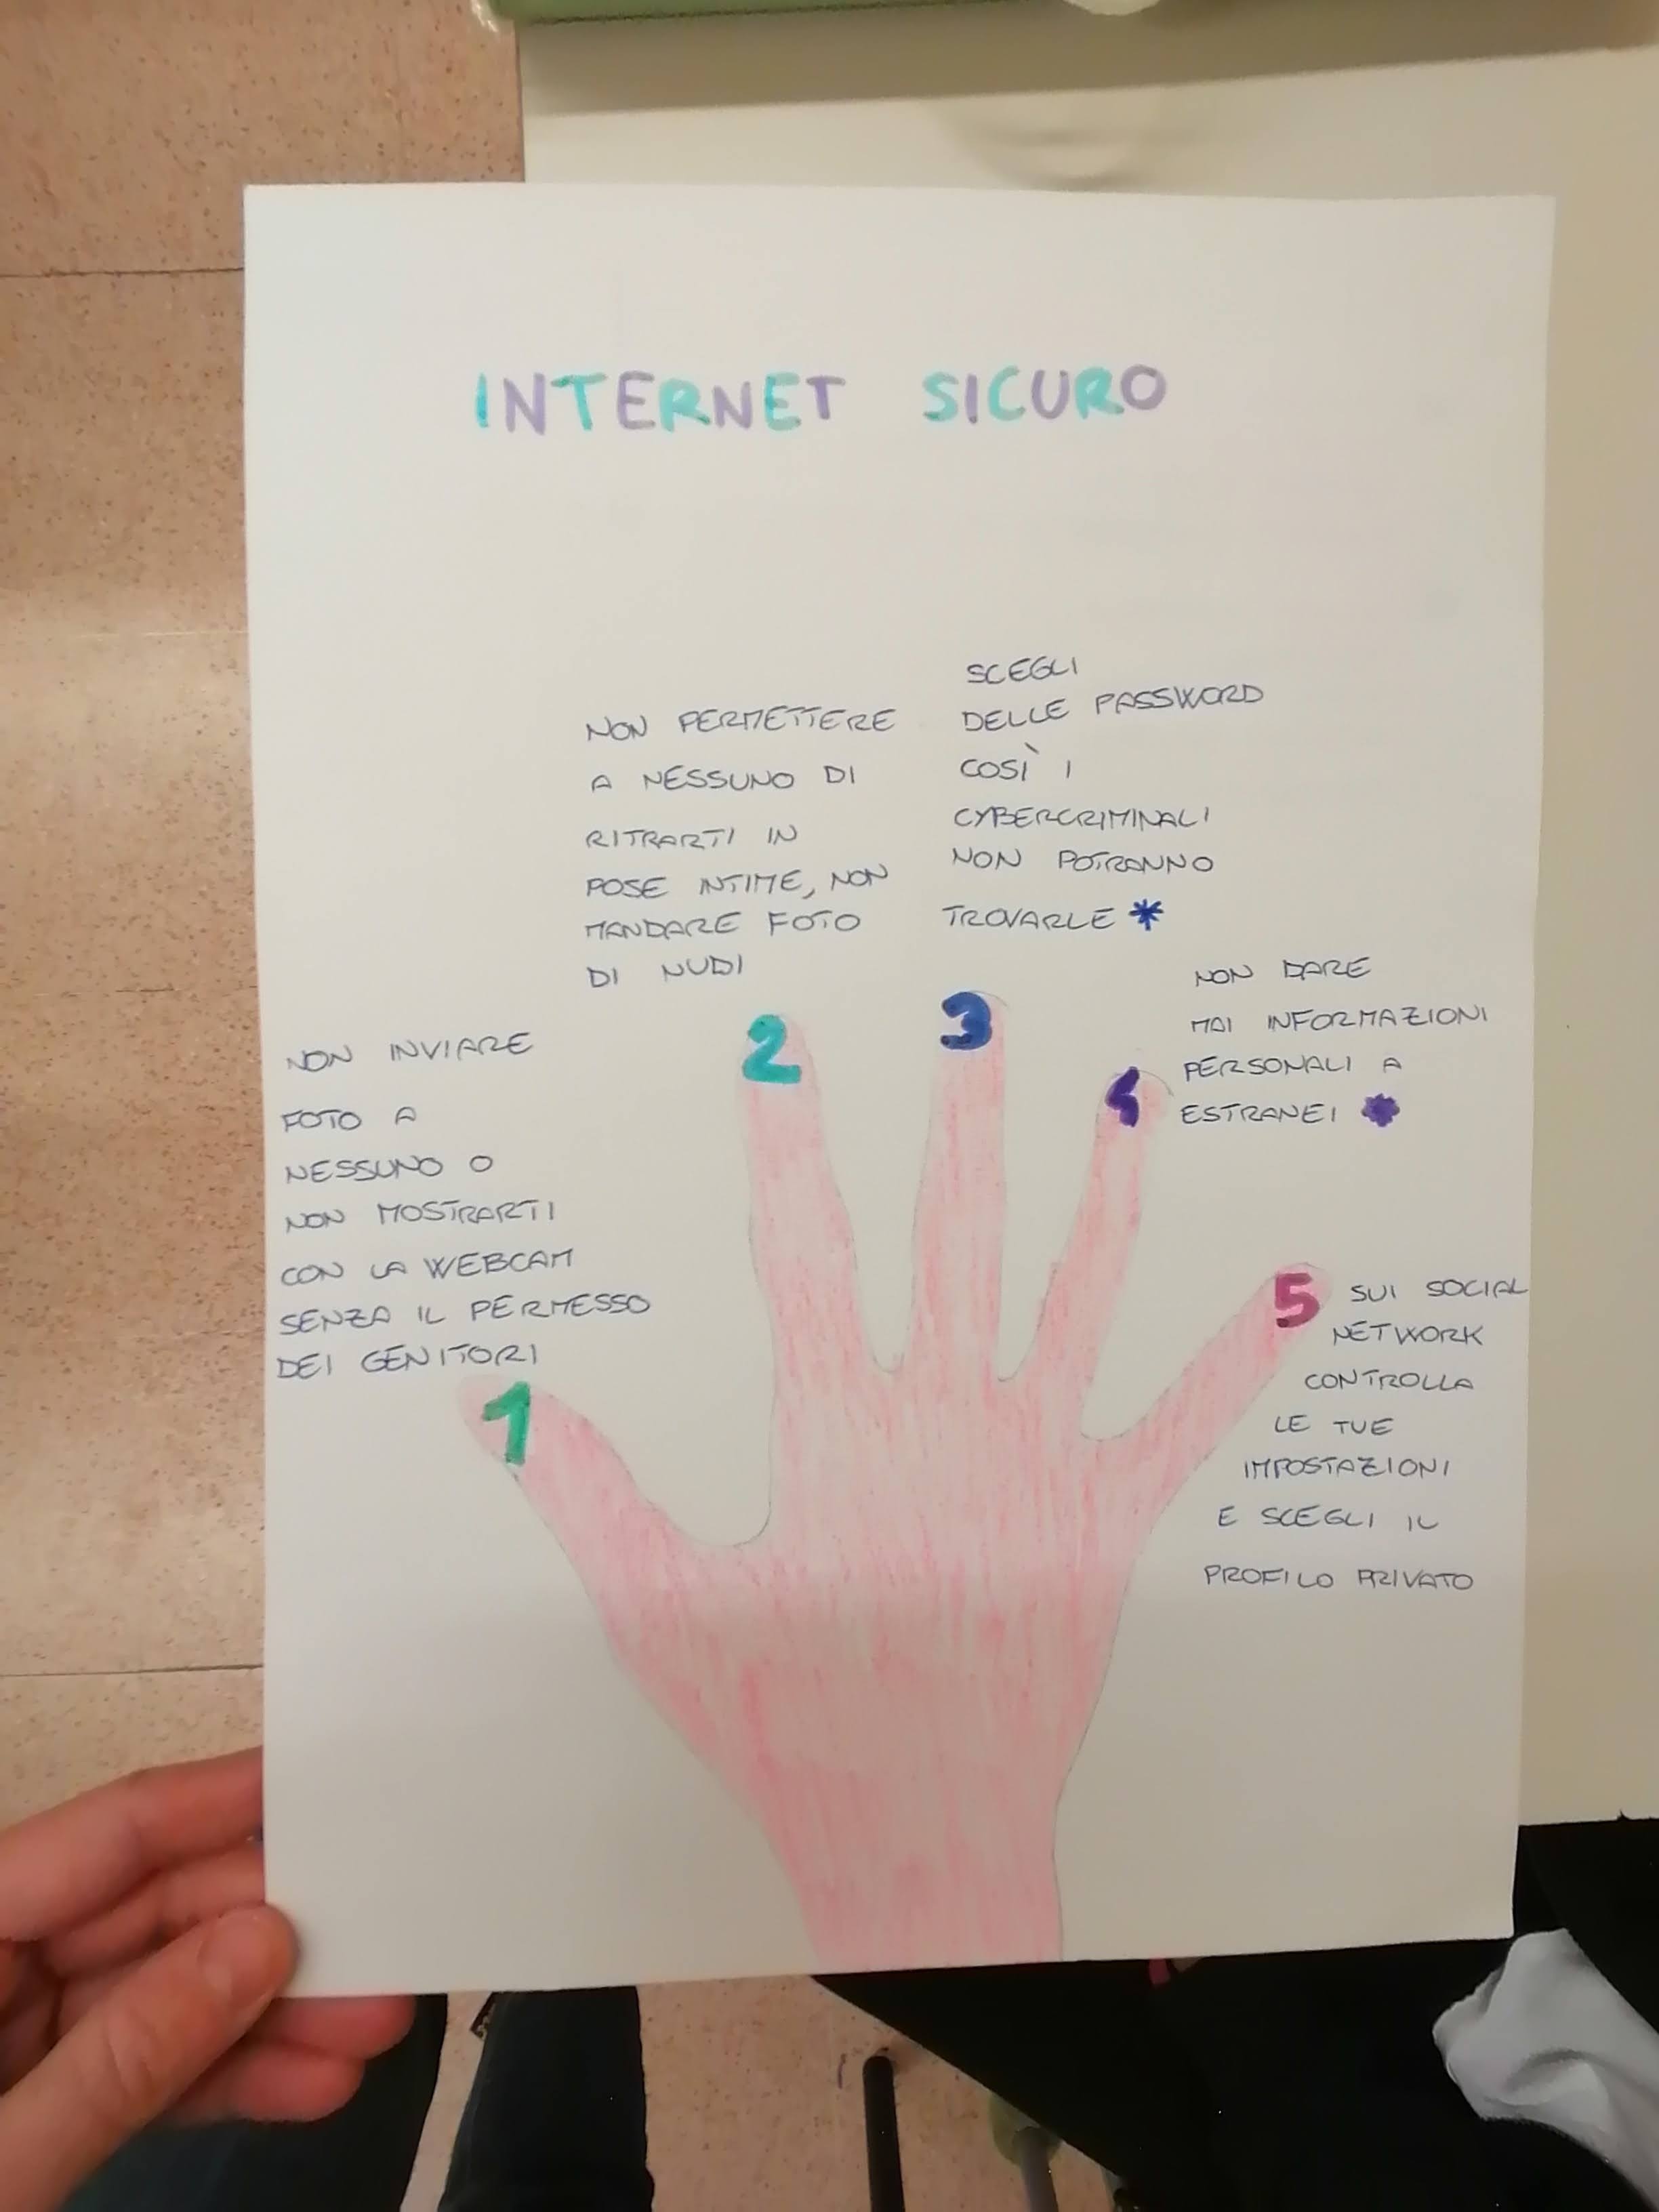 INTERNET SICURO
NON INVIARE
FOTO A
NESSUNO O
NON MOSTRARTI
CON LA WEBCAM
SENZA IL PERMESSO
DEI GENITORI
1
NON PERMETTERE
A NESSUNO DI
RITRARTI IN
POSE INTIME, NON
MANDARE FOTO
DI NUDI
2
SCEGLI
DELLE PASSWORD
COSÌ I
CYBERCRIMINALI
NON POTRANNO
TROVARLE *
3
NON DARE
MAI INFORMAZIONI
PERSONALI A
ESTRANEI *
4
5
SUI SOCIAL
NETWORK
CONTROLLA
LE TUE
IMPOSTAZIONI
E SCEGLI IL
PROFILO PRIVATO